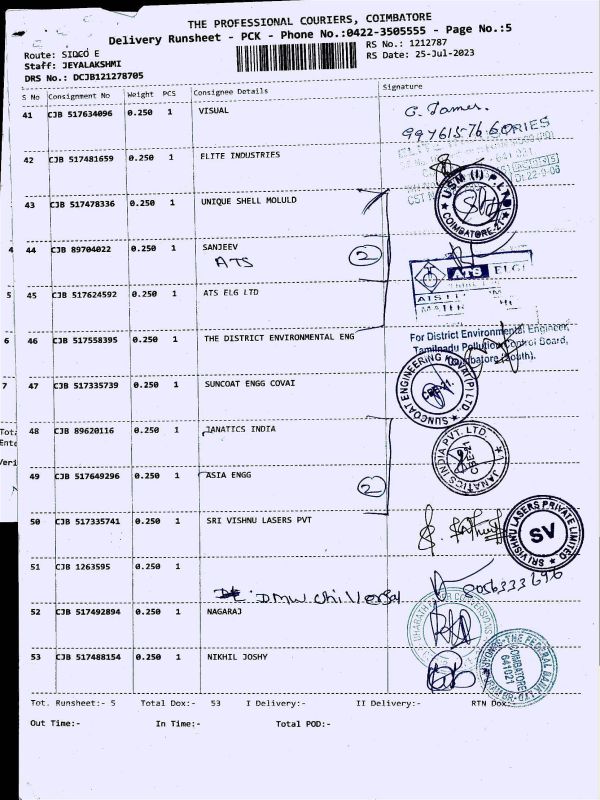 THE PROFESSIONAL COURIERS, COIMBATORE
Delivery Runsheet - PCK - Phone No.:0422-3505555 - Page No.:5
Route: SIDCO E
RS No.: 1212787
Staff: JEYALAKSHMI
RS Date: 25-Jul-2023
DRS No.: DCJB121278705
S No Consignment No Weight PCS Consignee Details Signature
41 CJB 517634096 0.250 1 VISUAL
G. James.
42 CJB 517481659 0.250 1 ELITE INDUSTRIES
43 CJB 517478336 0.250 1 UNIQUE SHELL MOLULD
USM (I) P.LTD
COIMBATORE-21
4 44 CJB 89704022 0.250 1 SANJEEV
ATS
2
ATS ELGI
5 45 CJB 517624592 0.250 1 ATS ELG LTD
6 46 CJB 517558395 0.250 1 THE DISTRICT ENVIRONMENTAL ENG
For District Environmental Engineer,
Tamilnadu Pollution Control Board,
Coimbatore (South).
7 47 CJB 517335739 0.250 1 SUNCOAT ENGG COVAI
SUNCOAT ENGINEERING KOVAI (P) LTD.,
CBE-21.
48 CJB 89620116 0.250 1 JANATICS INDIA
JANATICS INDIA PVT. LTD.
49 CJB 517649296 0.250 1 ASIA ENGG
2
50 CJB 517335741 0.250 1 SRI VISHNU LASERS PVT
SRI VISHNU LASERS PRIVATE LIMITED
SV
51 CJB 1263595 0.250 1
DMW
8056333696
52 CJB 517492894 0.250 1 NAGARAJ
53 CJB 517488154 0.250 1 NIKHIL JOSHY
THE FEDERAL BANK LTD
COIMBATORE
641021
Tot. Runsheet:- 5 Total Dox:- 53 I Delivery:- II Delivery:- RTN Dox:-
Out Time:- In Time:- Total POD:-